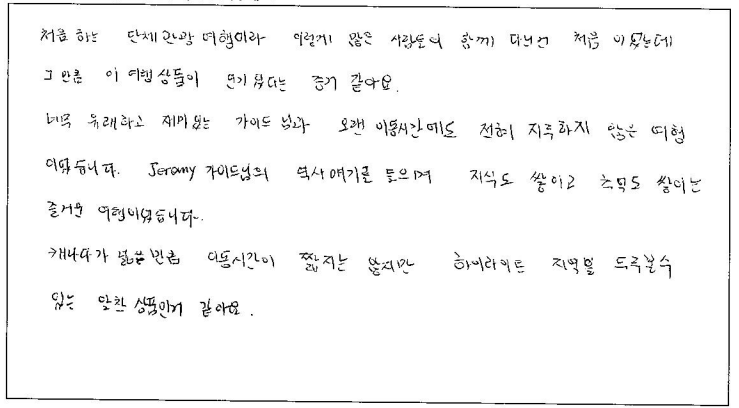 처음 하는 단체관광 여행이라 이렇게 많은 사람들이 함께 다닌건 처음 이였는데
그 만큼 이 여행상품이 인기 있다는 증거 같아요.
너무 유쾌하고 재미있는 가이드 님과 오랜 이동시간에도 전혀 지루하지 않은 여행
이였습니다. Jeromy 가이드님의 역사 얘기를 들으며 지식도 쌓이고 추억도 쌓이는
즐거운 여행이였습니다.
캐나다가 넓은 만큼 이동시간이 짧지는 않지만 하이라이트 지역을 두루볼수
있는 알찬 상품인거 같아요.